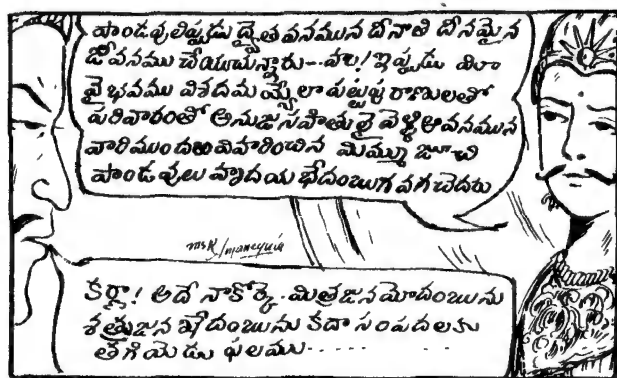 పాండవులిప్పుడు ద్వైత వనమున దీనాతి దీనమైన
జీవనము చేయుచున్నారు--- ఇప్పుడు
వైభవము విశదమయ్యేలా పట్టపు రాణులతో
పరివారంతో అనుజ సహితుడవై వెళ్ళి ఆవనమున
వారిముందఱ విహరించిన మిమ్ము జూచి
పాండవులు హృదయ భేదంబుగ వగచెదరు
కర్ణా! అదే నాకోర్కె. మిత్రజన మోదంబును
శత్రుజన ఖేదంబును కదా సంపదలకు
తగియెడు ఫలము.....